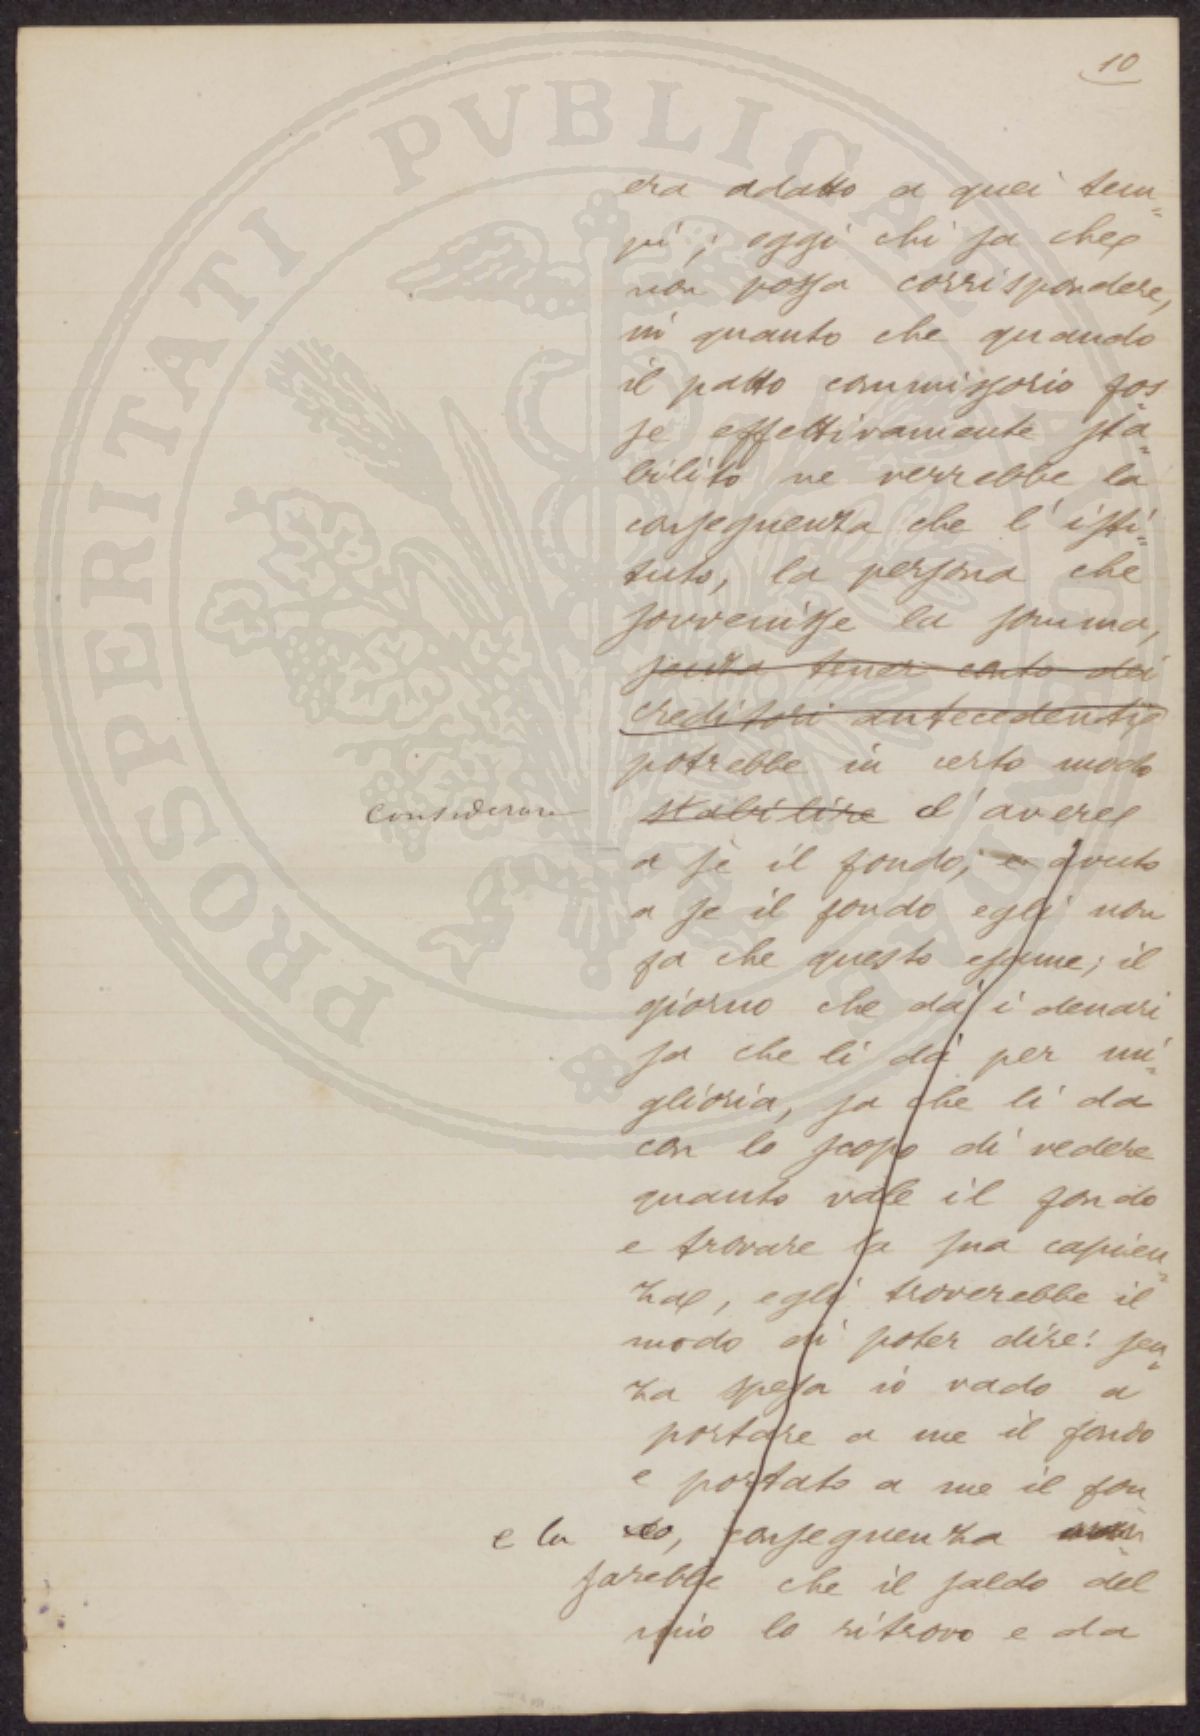 10
era adatto a quei tem=
pi; oggi chi sa che
non possa corrispondere,
in quanto che quando
il patto commissorio fos=
se effettivamente sta=
bilito ne verrebbe la
conseguenza che l'isti=
tuto, la persona che
sovvenisse la somma,
senza tener conto dei
creditori antecedenti
potrebbe in certo modo
considerare stabilire d'avere
a sè il fondo; e avuto
a se il fondo egli non
fa che questo esame; il
giorno che dà i denari
sa che li dà per mi=
glioria, sa che li da
con lo scopo di vedere
quanto vale il fondo
e trovare la sua capien=
za, egli troverebbe il
modo di poter dire: sen=
za spesa io vado a
portare a me il fondo
e portato a me il fon
e la do, conseguenza
sarebbe che il saldo del
mio lo ritrovo e da
PROSPERITATI PVBLICAE AVGENDAE